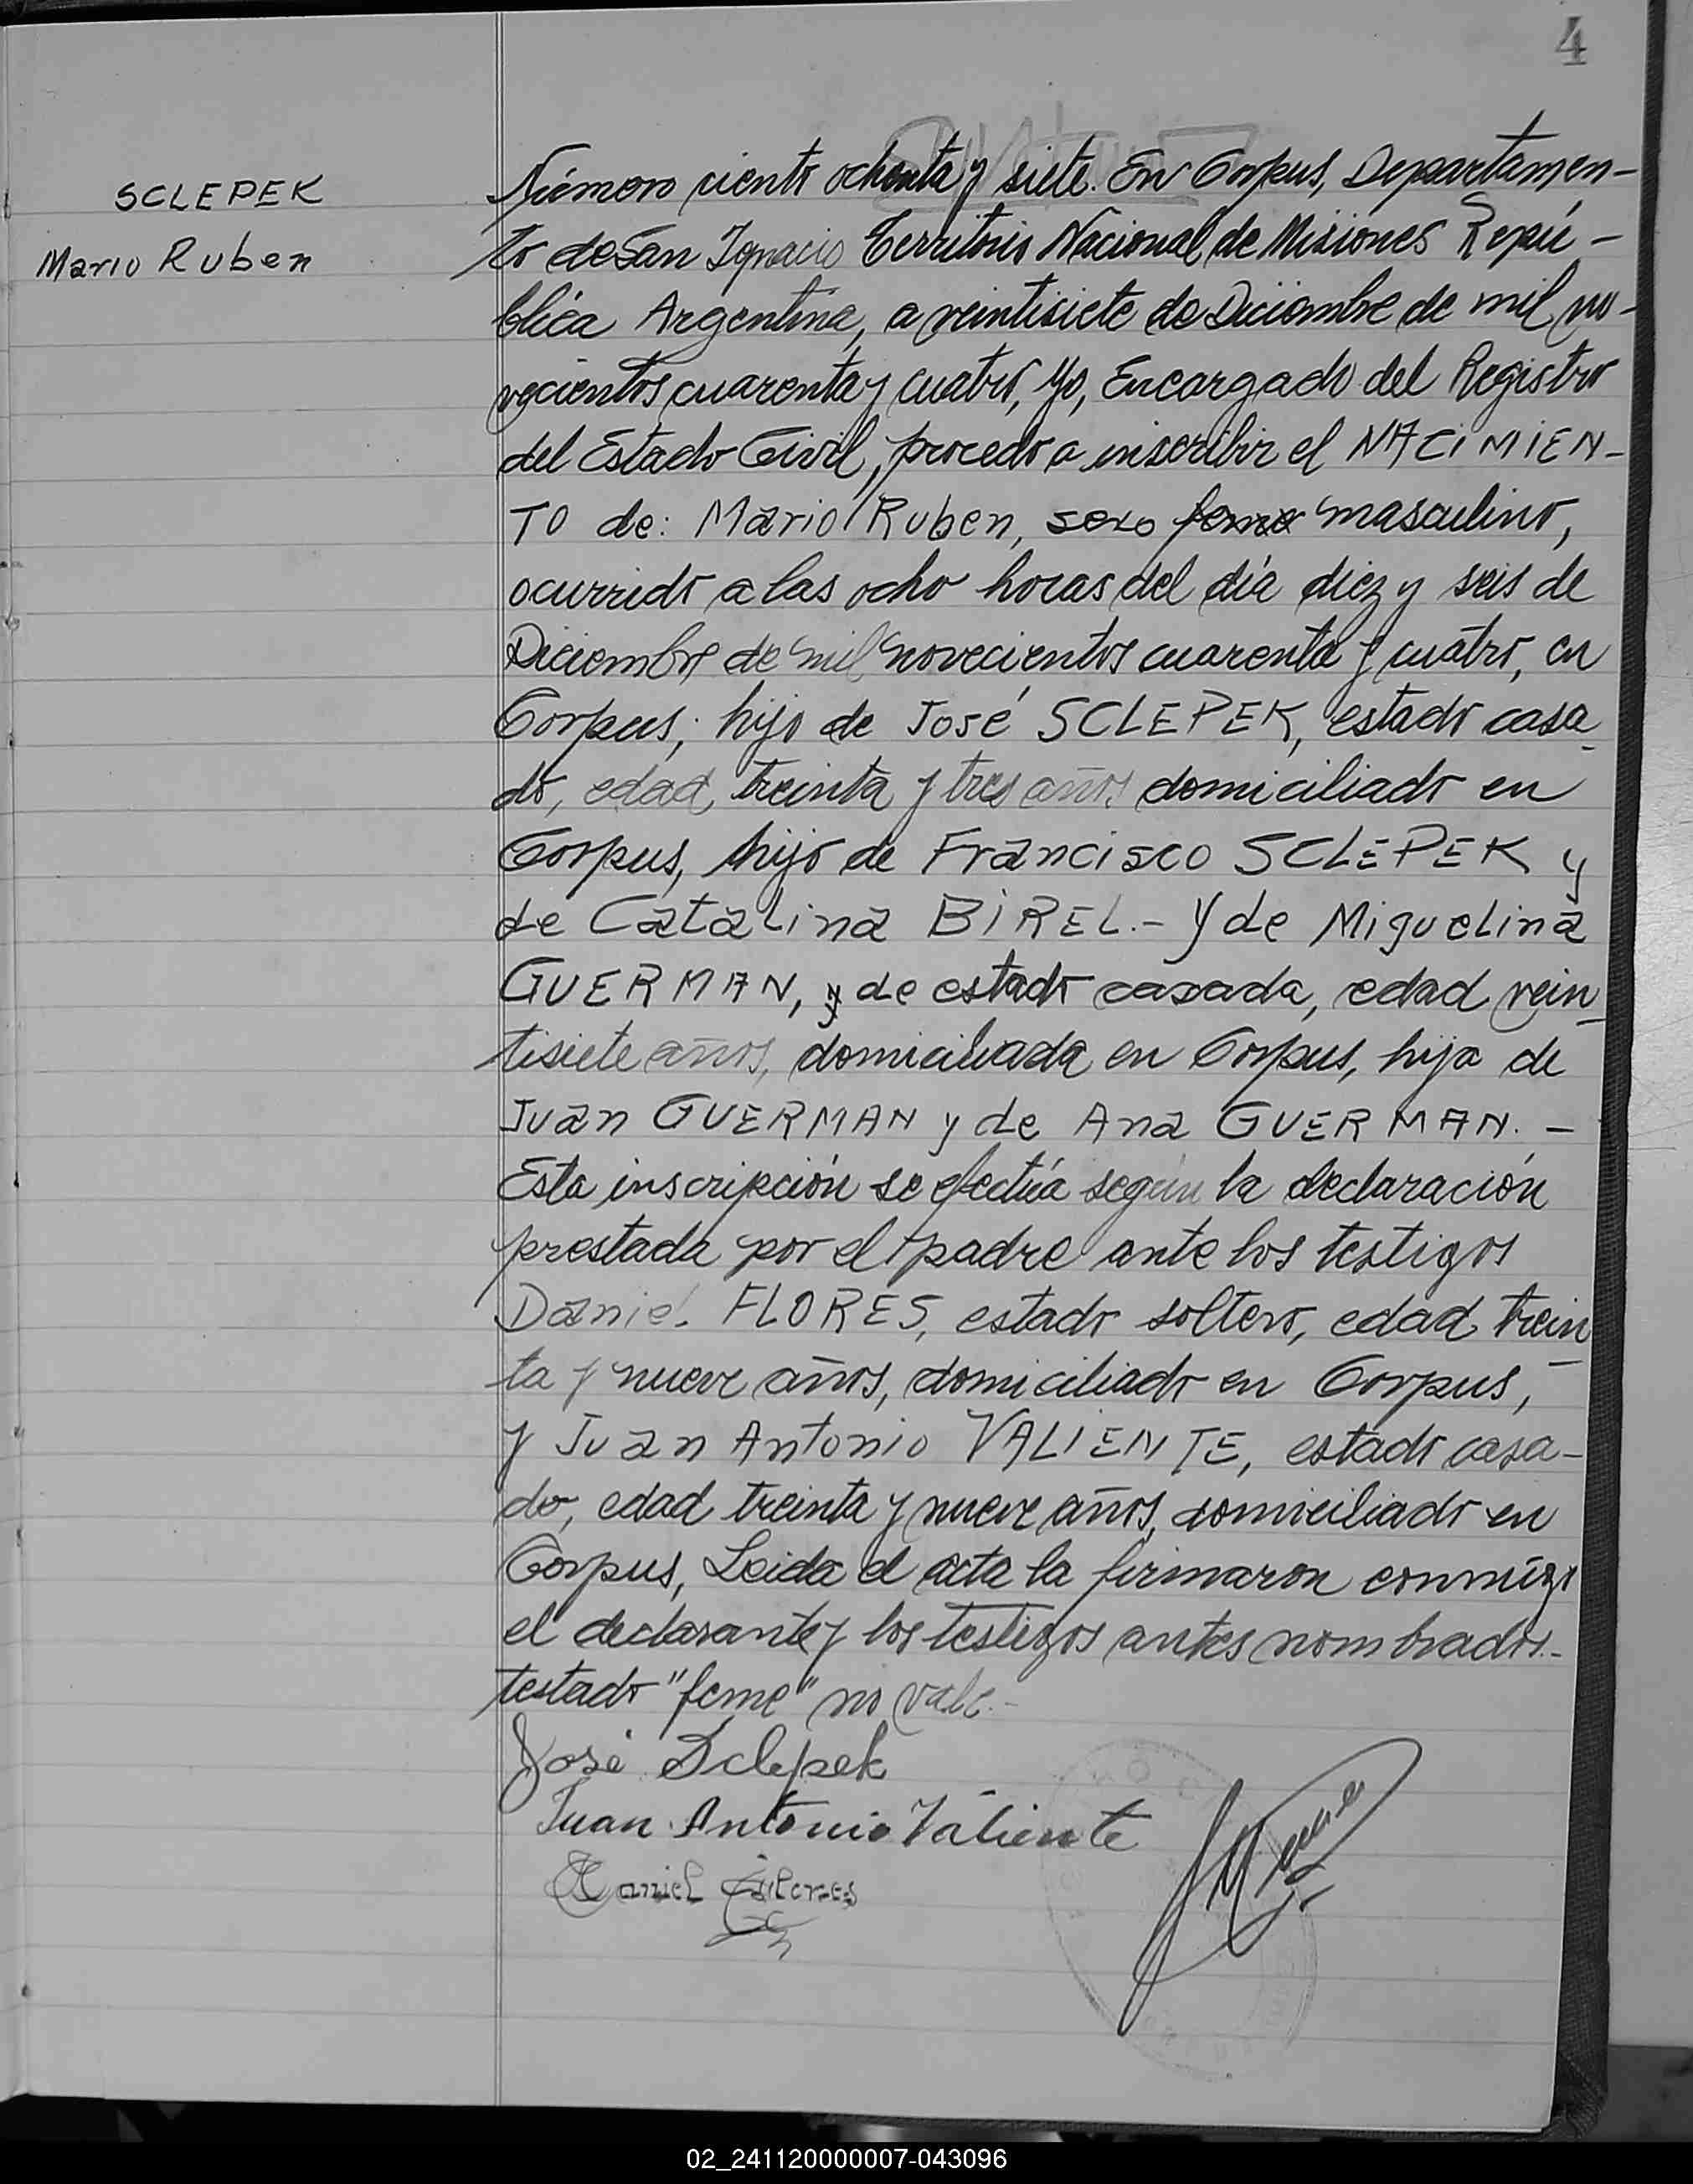 4
SCLEPEK
Mario Ruben
Número ciento ochenta y siete. En Corpus, Departamen-
to de San Ignacio Territorio Nacional de Misiones Repú-
blica Argentina, a veintisiete de Diciembre de mil no-
vecientos cuarenta y cuatro, Yo, Encargado del Registro
del Estado Civil, procedo a inscribir el NACIMIEN-
TO de: Mario Ruben, sexo feme masculino,
ocurrido a las ocho horas del día diez y seis de
Diciembre de mil novecientos cuarenta y cuatro, en
Corpus; hijo de José SCLEPEK, estado casa-
do, edad treinta y tres años, domiciliado en
Corpus, hijo de Francisco SCLEPEK y
de Catalina BIREL.- Y de Miguelina
GUERMAN, y de estado casada, edad vein-
tisiete años, domiciliada en Corpus, hija de
Juan GUERMAN y de Ana GUERMAN. -
Esta inscripción se efectúa según la declaración
prestada por el padre ante los testigos
Daniel FLORES, estado soltero, edad trein-
ta y nueve años, domiciliado en Corpus,
y Juan Antonio VALIENTE, estado casa-
do, edad treinta y nueve años, domiciliado en
Corpus, Leida el acta la firmaron conmigo
el declarante y los testigos antes nombrados.-
testado "feme" no vale.-
José Sclepek
Juan Antonio Valiente
Daniel Flores
02_241120000007-043096